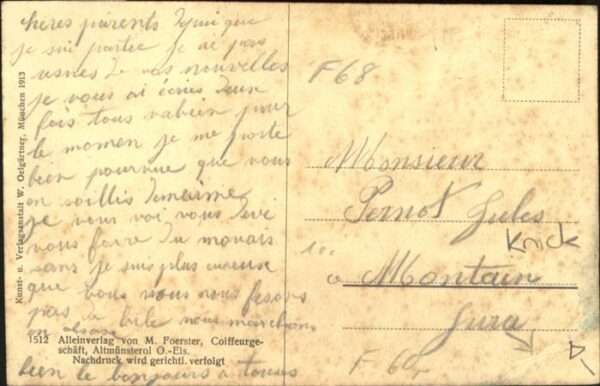 chères parents Depui que
je sui partie je ai pas
de vos nouvelles
je vous ai écries deux
fois tous va bien pour
le momen je me porte
bien pourvue que vous
en soillis de meme
je vous voi vous devi
vous faire du movais
sans je suis plus
que vous vous nous fesons
pas de bile nous marchons
en alsase
bien le bonjours a tous
Kunst- u. Verlagsanstalt W. Oelgärtner, München 1913
1512 Alleinverlag von M. Foerster, Coiffeurge-
schäft, Altmünsterol O.-Els.
Nachdruck wird gerichtl. verfolgt
F 68
Monsieur
Pernot Jules
Knick
a Montain
Jura